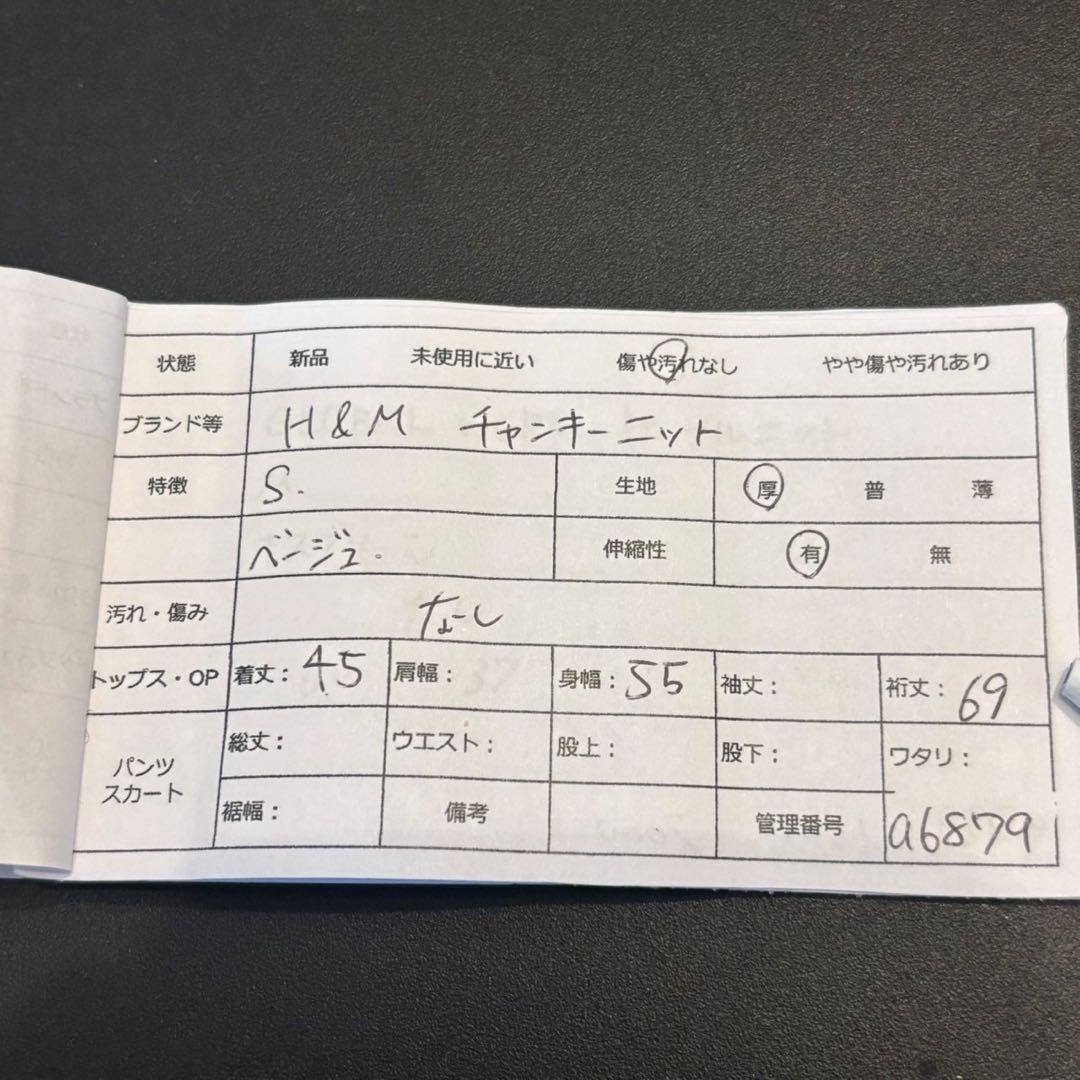 状態 新品 未使用に近い 傷や汚れなし やや傷や汚れあり
ブランド等 H&M チャンキーニット
特徴 S. 生地 厚 普 薄
ベージュ. 伸縮性 有 無
汚れ・傷み なし
トップス・OP 着丈：45 肩幅： 身幅：55 袖丈： 裄丈：69
パンツ スカート 総丈： ウエスト： 股上： 股下： ワタリ：
裾幅： 備考 管理番号 a6879